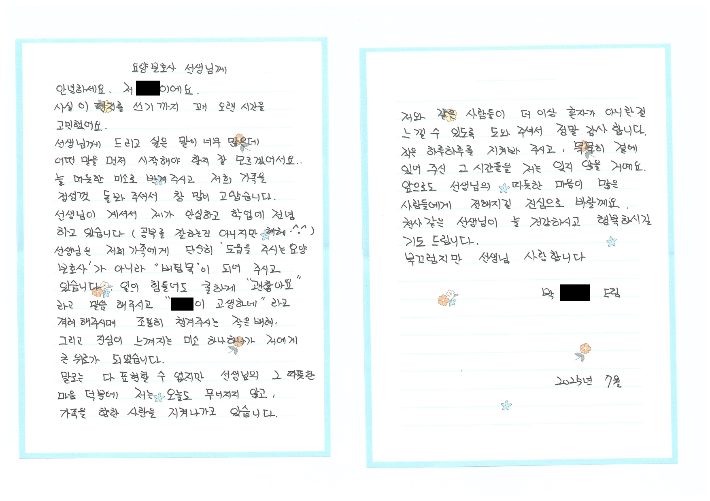 요양보호사 선생님께
안녕하세요. 저 이에요.
사실 이 편지를 쓰기까지 꽤 오랜 시간을
고민했어요.
선생님께 드리고 싶은 말이 너무 많은데
어떤 말을 먼저 시작해야 할지 잘 모르겠어서요..
늘 따뜻한 미소로 반겨 주시고 저희 가족을
정성껏 돌봐 주셔서 참 많이 고맙습니다.
선생님이 계셔서 제가 안심하고 학업에 전념
하고 있습니다 (공부를 잘하는건 아니지만 헤헤 ^^)
선생님은 저희 가족에게 단순히 '도움을 주시는 요양
보호사'가 아니라 "버팀목"이 되어 주시고
있습니다. 일이 힘들어도 늘 "괜찮아요"
라고 말씀 해주시고 " 이 고생하네" 라고
격려 해주시며 조용히 챙겨주시는 작은 배려.
그리고 진심이 느껴지는 미소 하나하나가 저에게
큰 위로가 되었습니다.
말로는 다 표현할 수 없지만 선생님의 그 따뜻한
마음 덕분에 저는 오늘도 무너지지 않고,
가족을 향한 사랑을 지켜나가고 있습니다.
저와 같은 사람들이 더 이상 혼자가 아니란 걸
느낄 수 있도록 도와 주셔서 정말 감사 합니다.
작은 하루하루를 지켜봐 주시고, 묵묵히 곁에
있어 주신 그 시간들을 저는 잊지 않을 거예요.
앞으로도 선생님의 따뜻한 마음이 많은
사람들에게 전해지길 진심으로 바랄게요.
천사같은 선생님이 늘 건강하시고 행복하시길
기도 드립니다.
부끄럽지만 선생님 사랑합니다
박 드림
2025년 7월